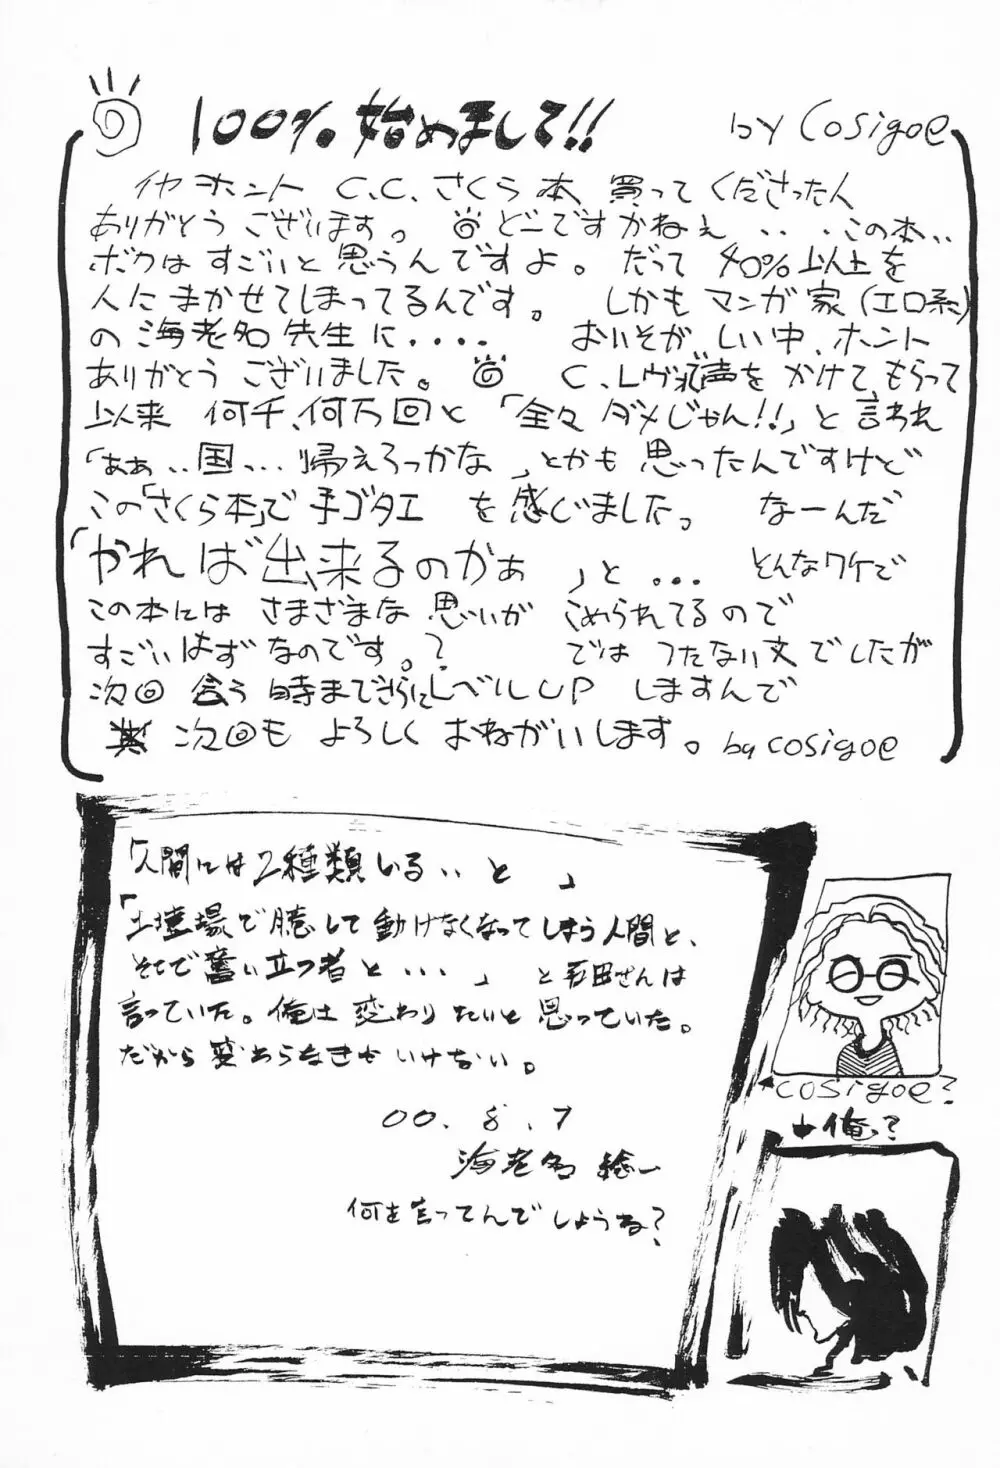 100% 始めまして!! by Cosigoe
イヤ ホント C.C.さくら 本 買って くださった人
ありがとう ございます。 どこですかねぇ・・・この本・・
ボクは すごいと 思うんですよ。 だって 40%以上を
人に まかせてしまってるんです。 しかも マンガ家(エロ系)
の 海老名 先生に・・・・ おいそがしい中、ホント
ありがとう ございました。 C.レヴォで声を かけて もらって
以来 何千、何万回と「全々 ダメじゃん!!」と 言われ
「ああ‥国‥. 帰えろっかな」とかも 思ったんですけど
この「さくら本」で 手ゴタエ を 感じました。 なーんだ
「やれば 出来るのかぁ」と... そんなワケで
この本には さまざまな 思いが こめられてるので
すごいはず なのです。? では つたない 文 でしたが
次回 会う 時まで さらに レベルUP しますんで
次回も よろしく おねがいします。 by cosigoe
「人間には2種類いる‥と」
「土壇場で臆して動けなくなってしまう人間と、
そこで奮い立つ者と・・・」と さんは
言っていた。俺は変わりたいと思っていた。
だから変わらなきゃいけない。
00.8.7
海老名 総一
何を言ってんでしょうね?
cosigoe?
↓俺っ?